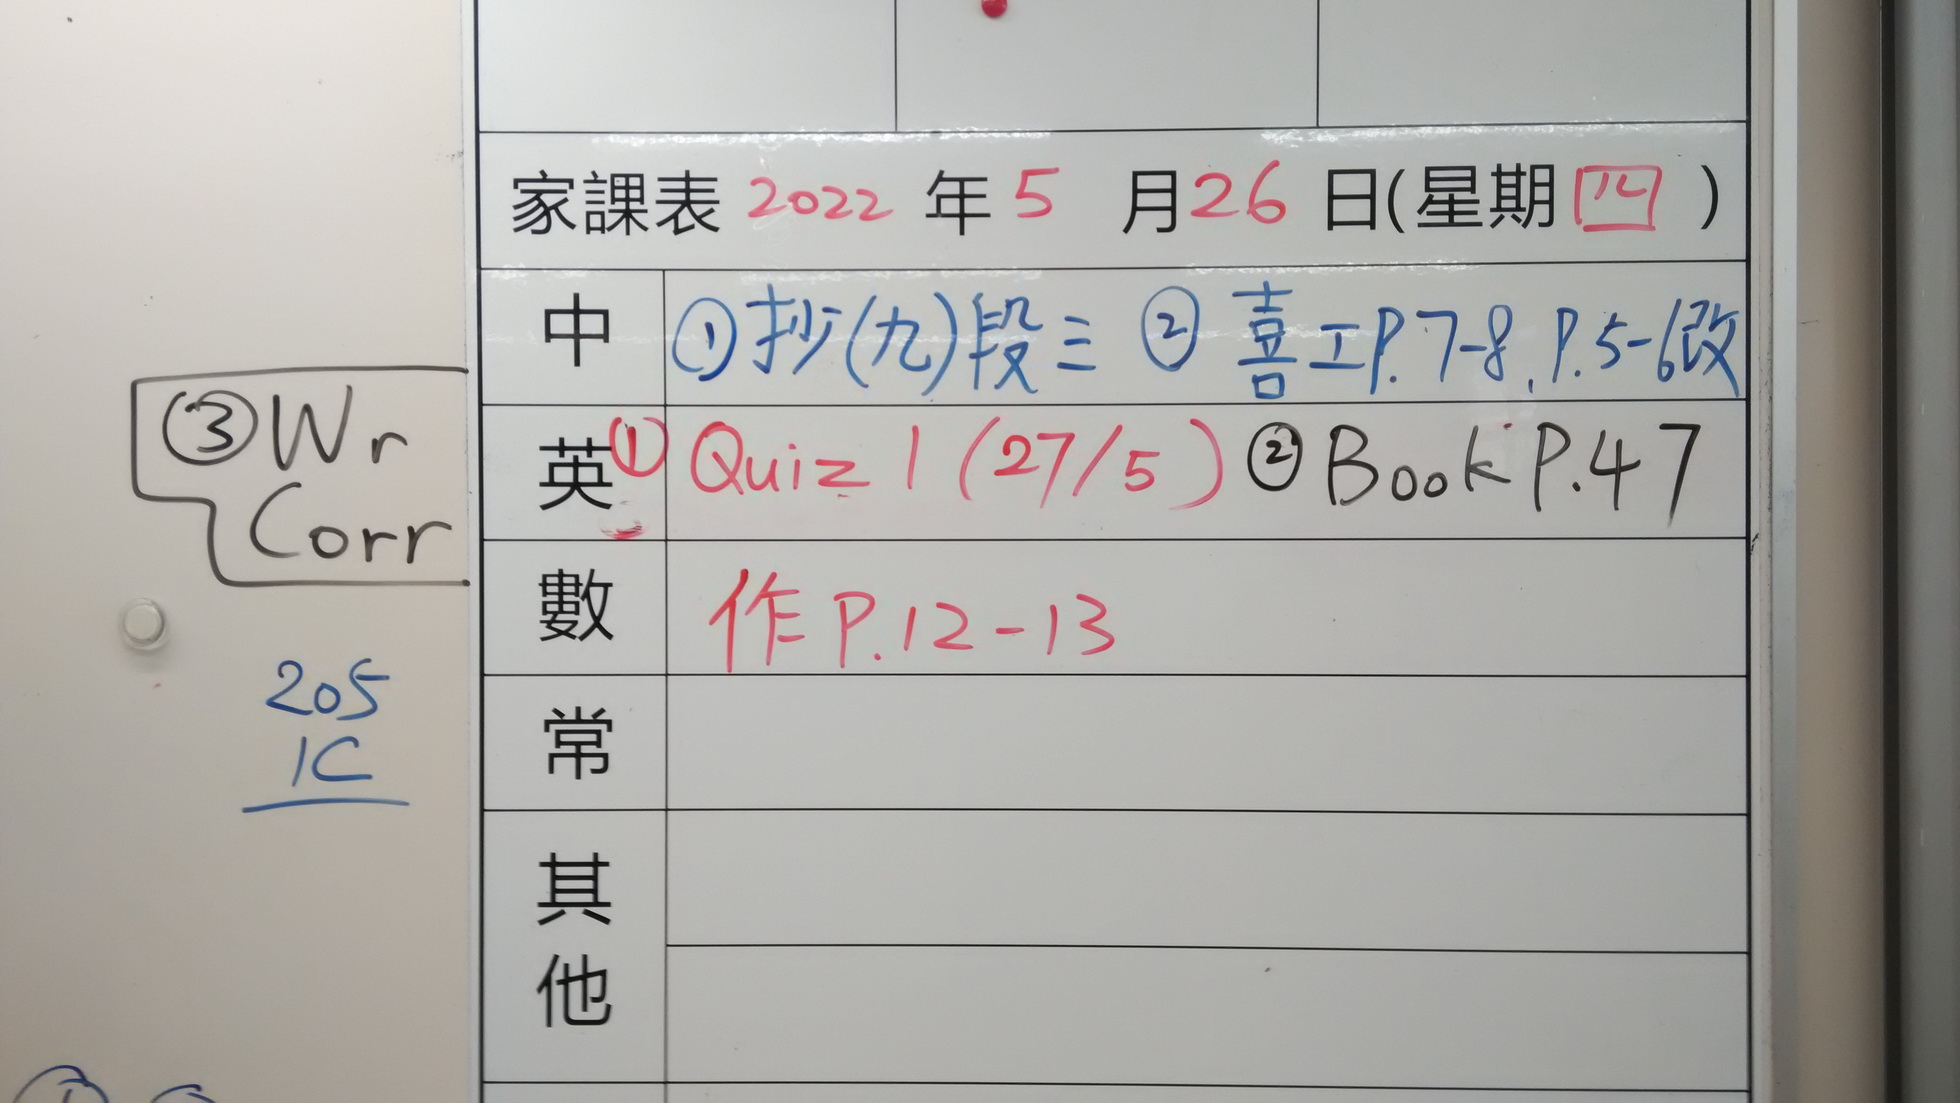 家課表 2022 年 5 月 26 日(星期 四 )
中 ①抄(九)段三 ② 喜工P.7-8, P.5-6改
英 ① Quiz 1 (27/5) ② Book P.47
③ Wr
Corr
數 作 P.12-13
205
1C
常
其
他